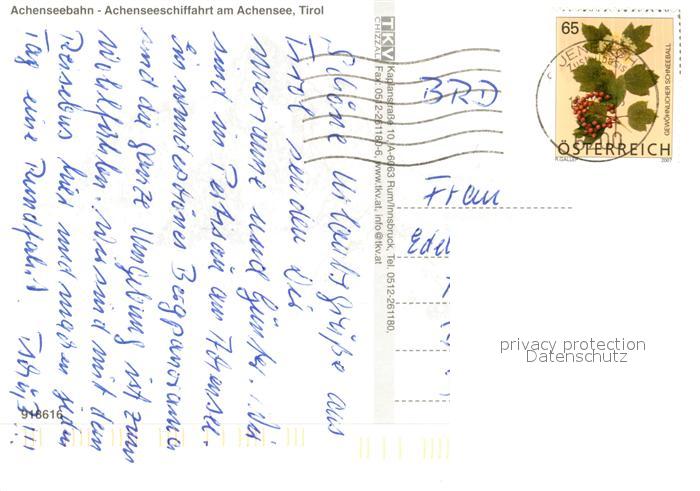 Achenseebahn - Achenseeschiffahrt am Achensee, Tirol
TKV
CHIZZALI
Kaplanstraße 10, A-6063 Rum/Innsbruck, Tel. 0512-261180,
Fax: 0512-261180-6, www.tkv.at, info@tkv.at
Schöne Urlaubsgrüße aus
Tirol senden Dir
Marianne und Günter. Wir
sind in Pertisau am Achensee.
Ein wunderschönes Bergpanorama
und die ganze Umgebung ist zum
Wohlfühlen. Wir sind mit dem
Reisebus hier und machen jeden
Tag eine Rundfahrt Tschüß!!!
918616
BRD
Frau
Edel
65
GEWÖHNLICHER SCHNEEBALL
ÖSTERREICH
2007
privacy protection
Datenschutz